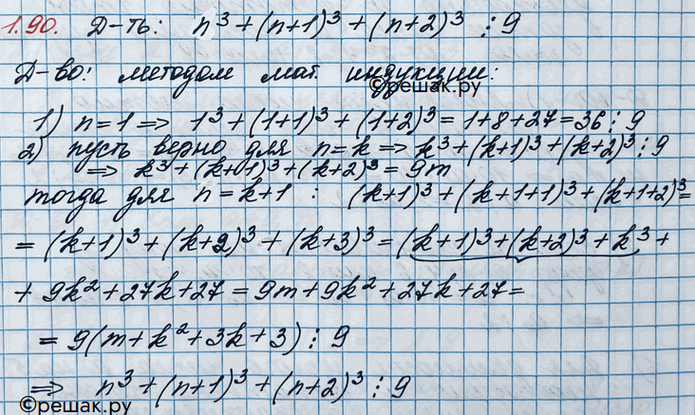 1.90. Д-ть: n³+(n+1)³+(n+2)³ ⋮ 9
Д-во: методом мат. индукции:
©решак.ру
1) n=1 ⇒ 1³+(1+1)³+(1+2)³=1+8+27=36 ⋮ 9
2) пусть верно для n=k ⇒ k³+(k+1)³+(k+2)³ ⋮ 9
⇒ k³+(k+1)³+(k+2)³=9m
тогда для n=k+1 : (k+1)³+(k+1+1)³+(k+1+2)³=
=(k+1)³+(k+2)³+(k+3)³=(k+1)³+(k+2)³+k³+
+9k²+27k+27=9m+9k²+27k+27=
=9(m+k²+3k+3) ⋮ 9
⇒ n³+(n+1)³+(n+2)³ ⋮ 9
©решак.ру